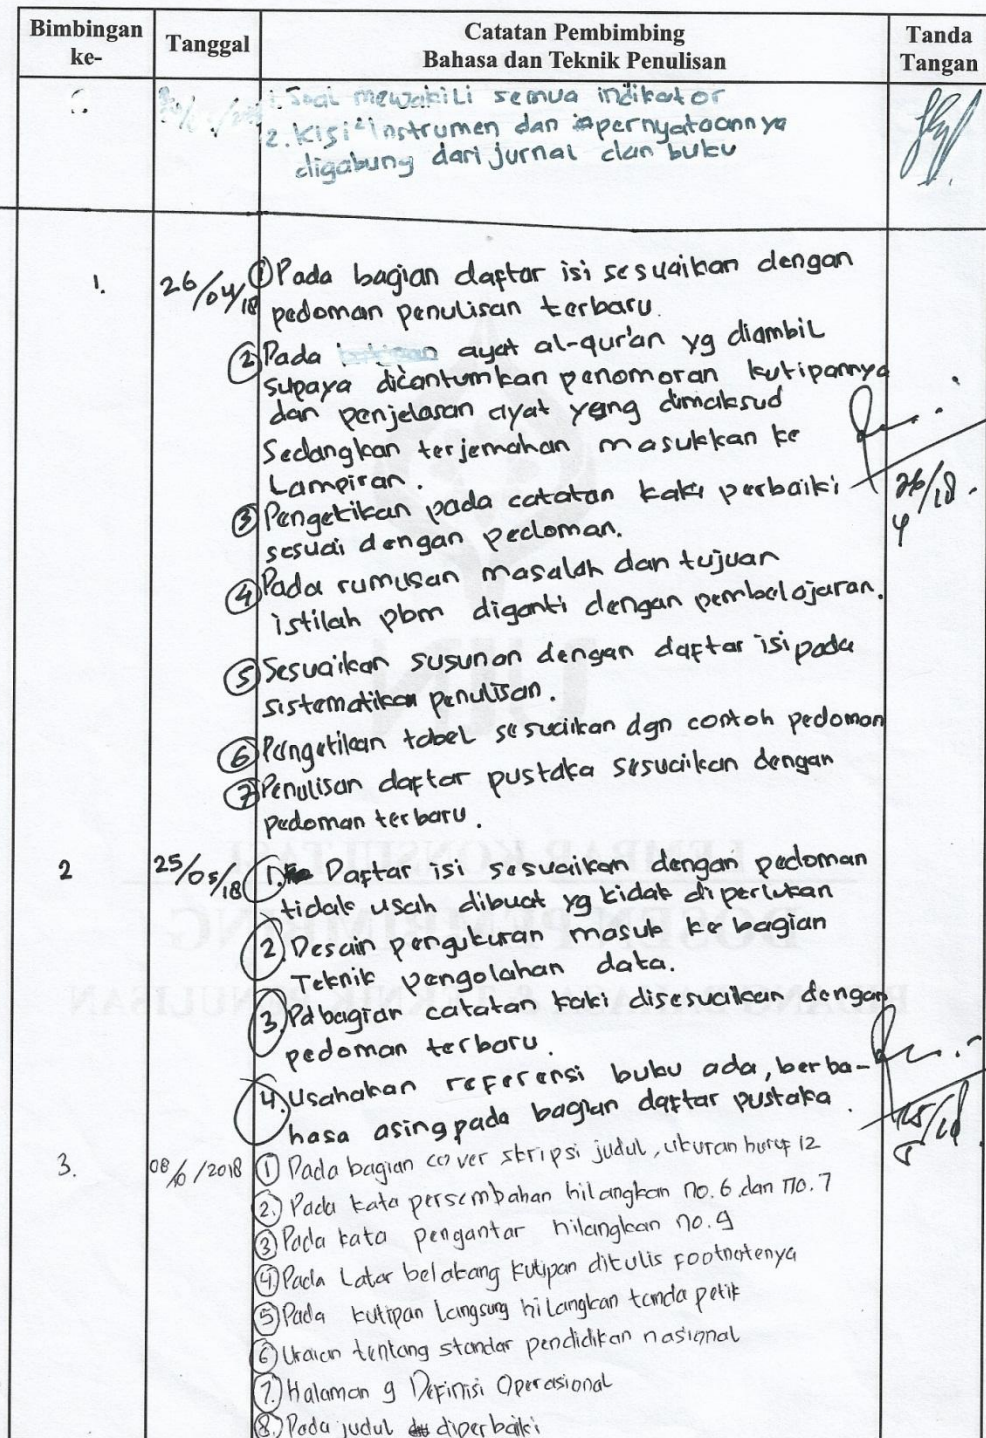 Bimbingan ke-
Tanggal
Catatan Pembimbing
Bahasa dan Teknik Penulisan
Tanda Tangan
1. Soal mewakili semua indikator
2. Kisi² instrumen dan pernyataannya
digabung dari jurnal dan buku
1.
26/04/18
① Pada bagian daftar isi sesuaikan dengan
pedoman penulisan terbaru.
② Pada ayat al-qur'an yg diambil
supaya dicantumkan penomoran kutipannya
dan penjelasan ayat yang dimaksud
Sedangkan terjemahan masukkan ke
Lampiran.
③ Pengetikan pada catatan kaki perbaiki
sesuai dengan pedoman.
26/18
4
④ Pada rumusan masalah dan tujuan
istilah pbm diganti dengan pembelajaran.
⑤ Sesuaikan susunan dengan daftar isi pada
sistematika penulisan.
⑥ Pengetikan tabel sesuaikan dgn contoh pedoman
⑦ Penulisan daftar pustaka sesuaikan dengan
pedoman terbaru.
2
25/05/18
1. Daftar isi sesuaikan dengan pedoman
tidak usah dibuat yg tidak diperlukan
2. Desain pengukuran masuk ke bagian
Teknik pengolahan data.
3. Pd bagian catatan kaki disesuaikan dengan
pedoman terbaru.
4. Usahakan referensi buku ada, berba-
hasa asing pada bagian daftar pustaka.
3.
08/6/2018
① Pada bagian cover skripsi judul, ukuran huruf 12
②. Pada kata persembahan hilangkan no. 6 dan no. 7
③ Pada kata pengantar hilangkan no. 9
④ Pada Latar belakang kutipan ditulis footnotenya
⑤ Pada kutipan langsung hilangkan tanda petik
⑥ Uraian tentang standar pendidikan nasional
⑦. Halaman 9 Definisi Operasional
⑧. Pada judul diperbaiki